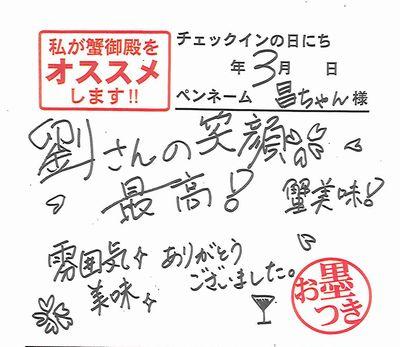 私が蟹御殿を
オススメ
します!!
チェックインの日にち
年 3月 日
ペンネーム 昌ちゃん 様
劉さんの笑顔
最高!
蟹美味!
雰囲気
美味
ありがとう
ございました。
お墨つき